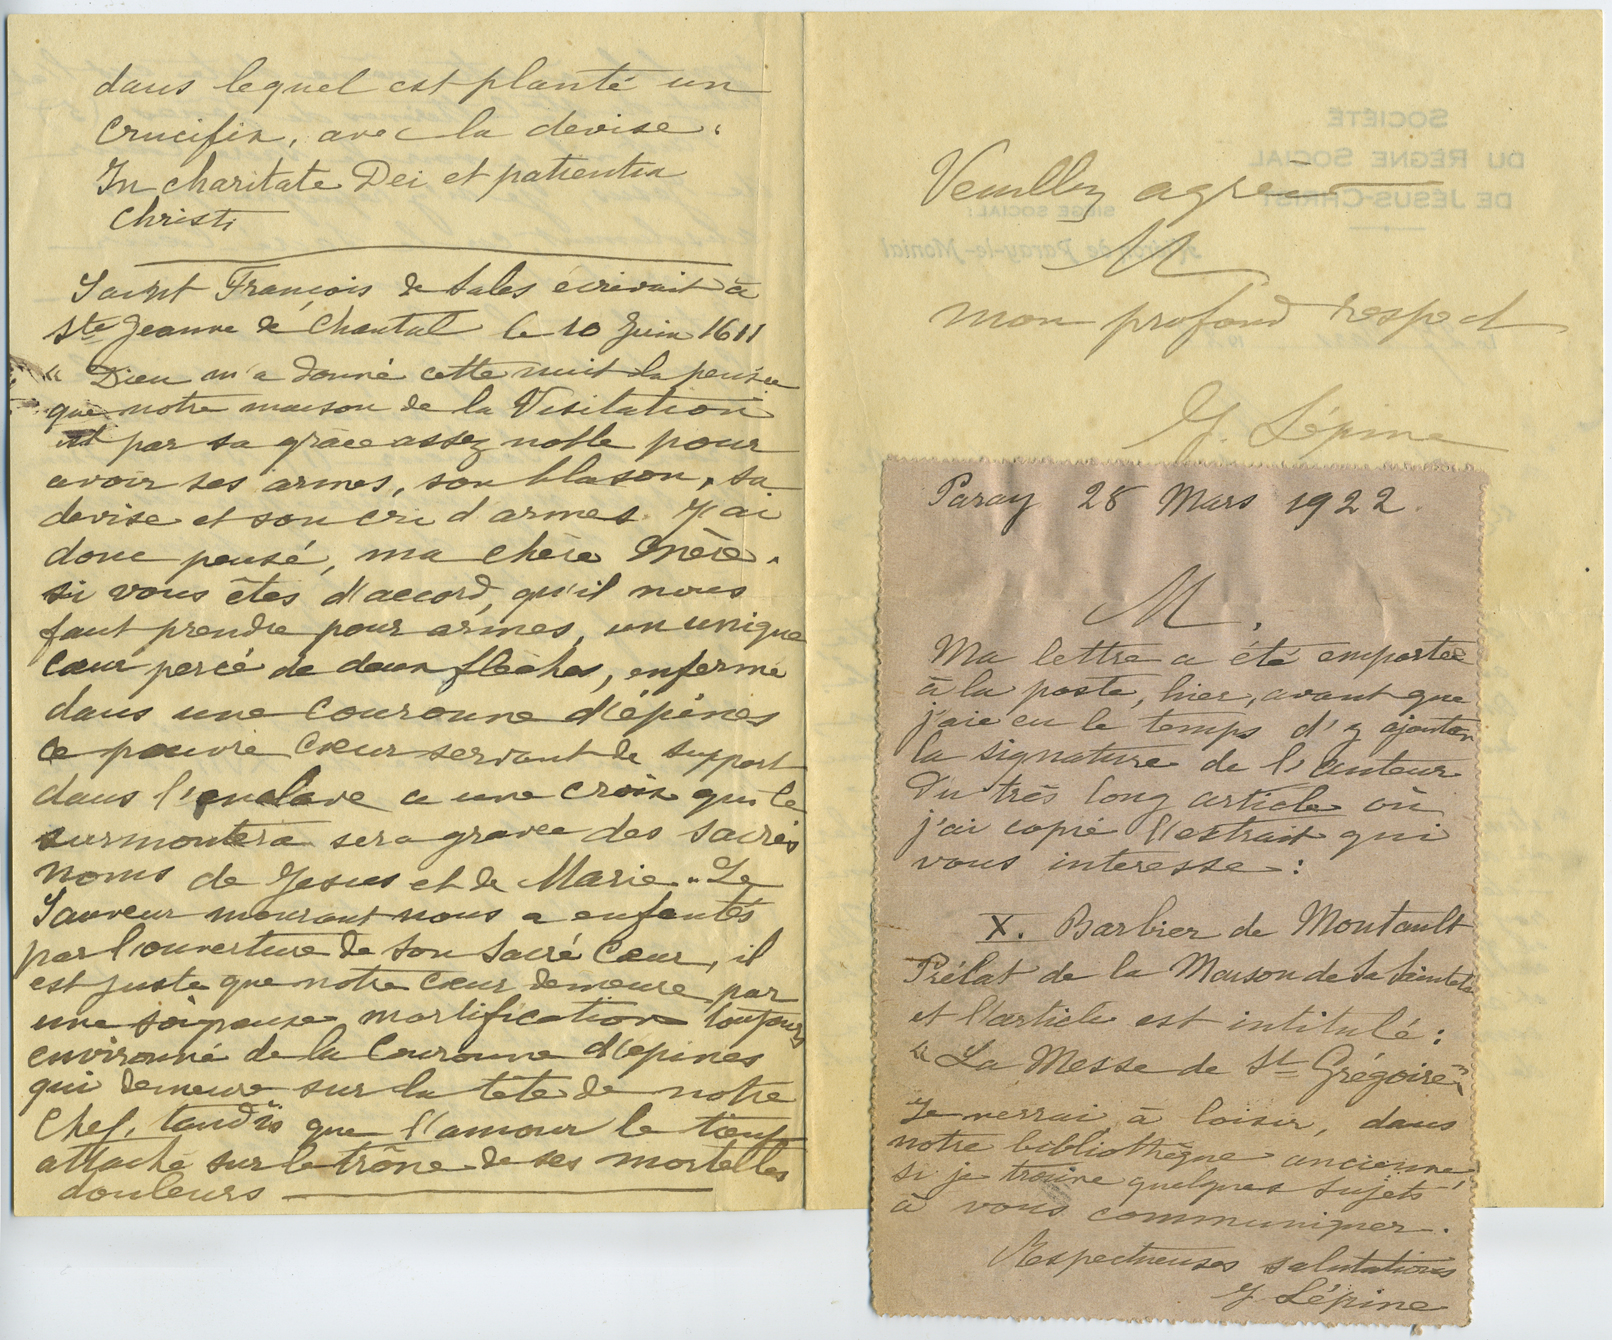 dans lequel est planté un
Crucifix, avec la devise :
In charitate Dei et patientia
Christi
Saint François de Sales écrivait à
Ste Jeanne de Chantal le 10 Juin 1611
« Dieu m'a donné cette nuit la pensée
que notre maison de la Visitation
est par sa grâce assez noble pour
avoir ses armes, son blason, sa
devise et son cri d'armes. J'ai
donc pensé, ma chère Mère,
si vous êtes d'accord, qu'il nous
faut prendre pour armes, un unique
Cœur percé de deux flèches, enfermé
dans une Couronne d'épines
ce pauvre Cœur servant de support
dans l'enclave a une croix qui le
surmontera sera gravée des sacrés
noms de Jesus et de Marie. Le
Sauveur mourant nous a enfantés
par l'ouverture de son Sacré Cœur, il
est juste que notre Cœur demeure par
une soigneuse mortification toujours
environné de la Couronne d'épines
qui demeura sur la tête de notre
Chef, tandis que l'amour le tient
attaché sur le trône de ses mortelles
douleurs
SOCIÉTÉ
DU RÈGNE SOCIAL
DE JÉSUS-CHRIST
SIÈGE SOCIAL:
de Paray-le-Monial
Veuillez agréer
M
mon profond respect
J. Lépine
Paray 28 Mars 1922.
M.
Ma lettre a été emportée
à la poste, hier, avant que
j'aie eu le temps d'y ajouter
la signature de l'auteur
Du très long article où
j'ai copié l'extrait qui
vous interesse :
X. Barbier de Montault
Prélat de la Maison de Sa Sainteté
et l'article est intitulé :
« La Messe de St Grégoire »
Je verrai à loisir, dans
notre bibliothèque ancienne,
si je trouve quelques sujets
à vous communiquer.
Respectueuses salutations
J Lépine